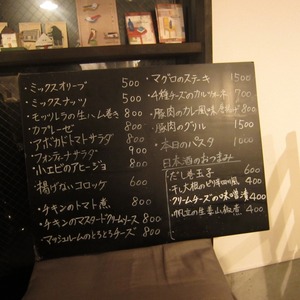 ・ミックスオリーブ 500
・ミックスナッツ 500
・モッツレラの生ハム巻き 800
・カプレーゼ 800
・アボカドトマトサラダ 900
・小エビのアヒージョ 800
・揚げないコロッケ 600
・チキンのトマト煮 800
・チキンのマスタードクリームソース 800
・マッシュルームのとろとろチーズ 800
・マグロのステーキ 1500
・4種チーズのカルツォーネ 700
・豚肉のカレー風味 800
・豚肉のグリル 1500
・本日のパスタ 1000
日本酒のおつまみ
だし巻玉子 600
400
・クリームチーズの味噌漬 400
400